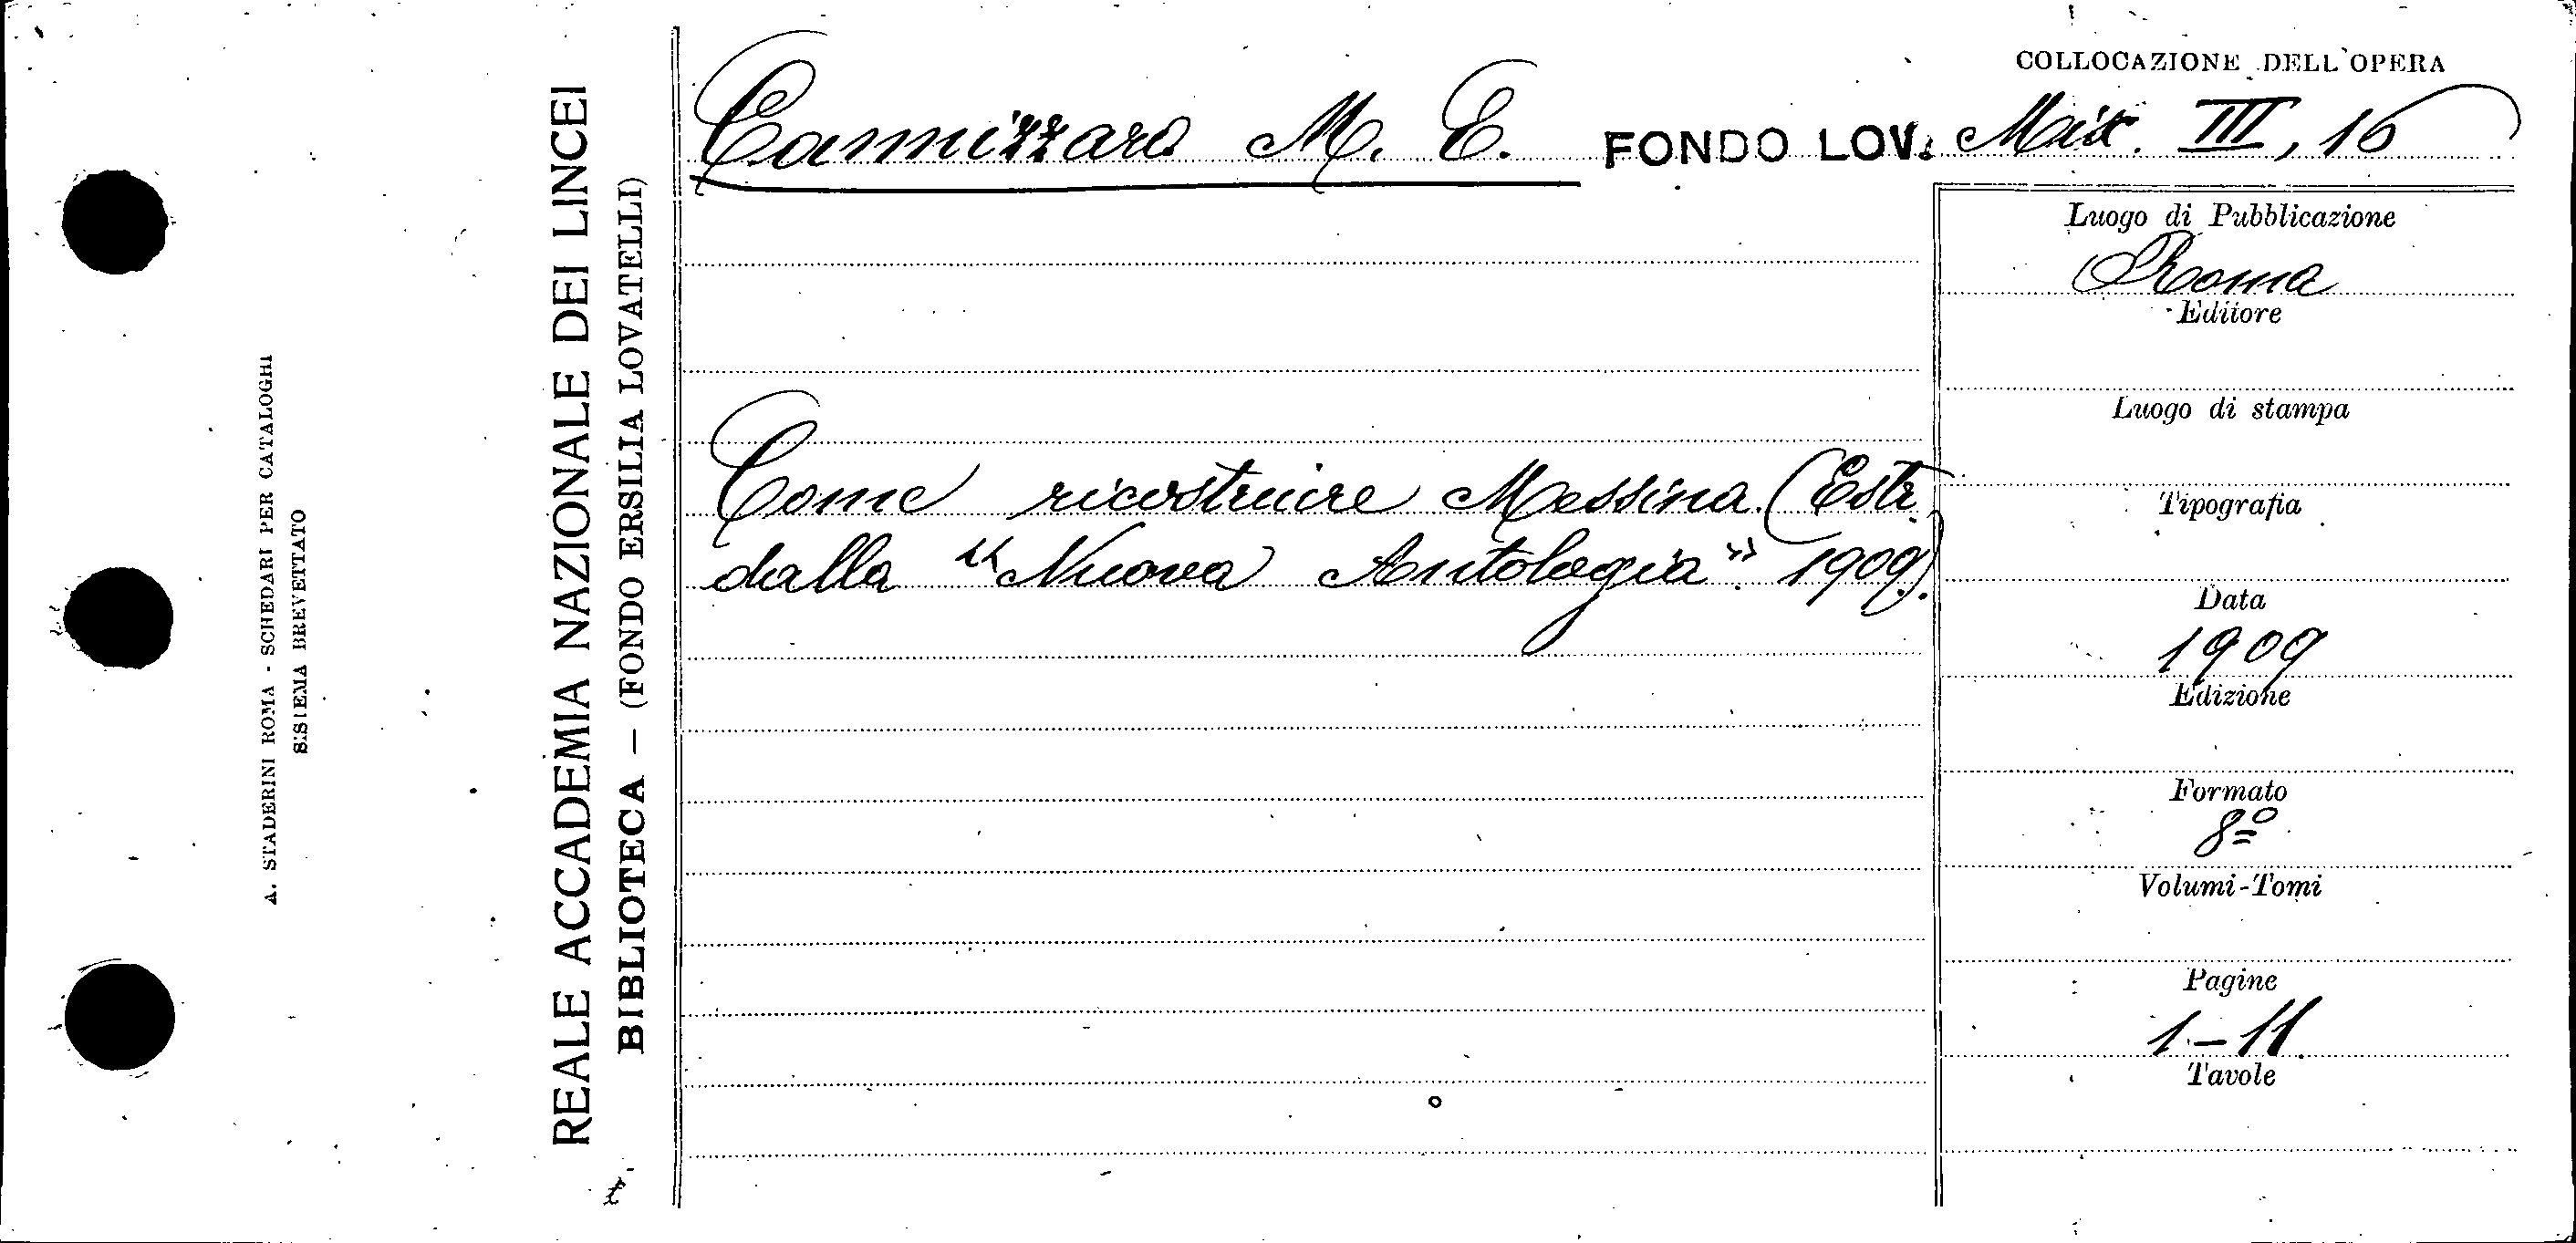 A. STADERINI ROMA - SCHEDARI PER CATALOGHI
SISTEMA BREVETTATO
REALE ACCADEMIA NAZIONALE DEI LINCEI
BIBLIOTECA — (FONDO ERSILIA LOVATELLI)
COLLOCAZIONE DELL'OPERA
Cannizzaro M. E. FONDO LOV. Misc. III, 16
Come ricostruire Messina. (Estr.
dalla "Nuova Antologia". 1909).
Luogo di Pubblicazione
Roma
Editore
Luogo di stampa
Tipografia
Data
1909
Edizione
Formato
8º
Volumi-Tomi
Pagine
1-11
Tavole